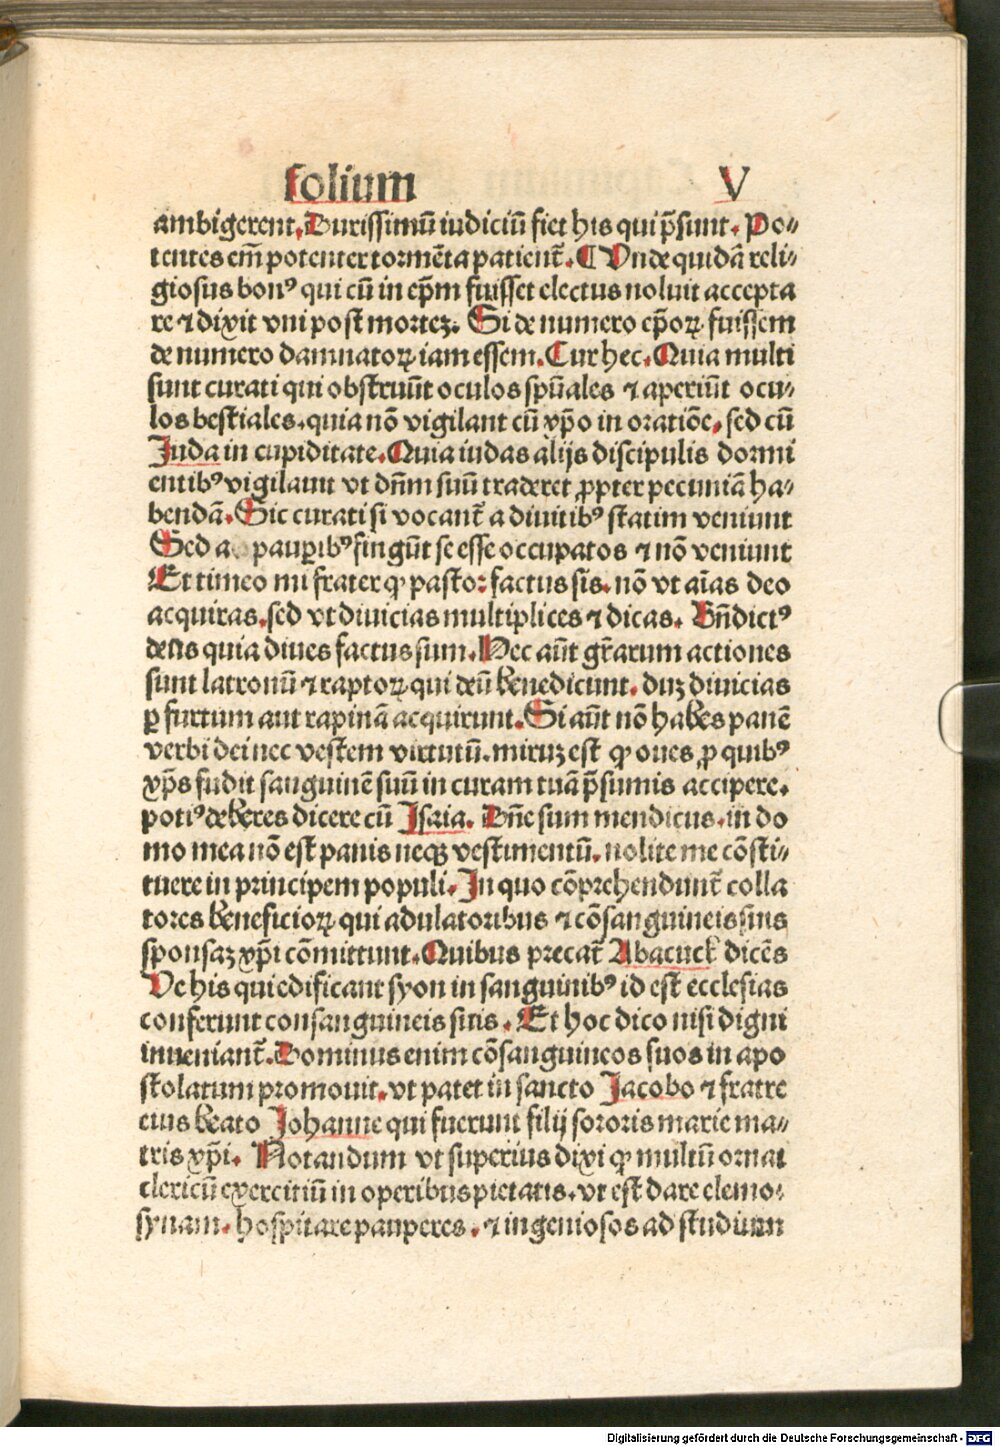 folium V
ambigerent. Durissimū iudiciū fiet his qui p̄sunt. Po⸗
tentes em̄ potenter tormēta patient̄. ¶ Unde quidā reli⸗
giosus bonꝰ qui cū in ep̄m fuisset electus noluit accepta
re ⁊ dixit vni post mortez. Si de numero ep̄oꝝ fuissem
de numero damnatoꝝ iam essem. Cur hec. Quia multi
sunt curati qui obstruūt oculos spūales ⁊ aperiūt ocu⸗
los bestiales. quia nō vigilant cū xp̄o in oratiōe, sed cū
Juda in cupiditate. Quia iudas alijs discipulis dormi
entibꝰ vigilauit vt dn̄m suū traderet ꝓpter pecuniā ha⸗
bendā. Sic curati si vocant̄ a diuitibꝰ statim veniunt
Sed a pauꝑibꝰ fingūt se esse occupatos ⁊ nō veniunt
Et timeo mi frater ꝙ pastor factus sis. nō vt aīas deo
acquiras. sed vt diuicias multiplices ⁊ dicas. Bn̄dictꝰ
deus quia diues factus sum. Nec aūt gr̄arum actiones
sunt latronū ⁊ raptoꝝ qui deū benedicunt. duz diuicias
ꝑ furtum aut rapinā acquirunt. Si aūt nō habes panē
verbi dei nec vestem virtutū. miruz est ꝙ oues ꝓ quibꝰ
xp̄s fudit sanguinē suū in curam tuā p̄sumis accipere.
potiꝰ deberes dicere cū Isaia. Dn̄e sum mendicus. in do
mo mea nō est panis neqꝫ vestimentū. nolite me cōsti⸗
tuere in principem populi. In quo cōprehendunt̄ colla
tores beneficioꝝ qui adulatoribus ⁊ cōsanguineis suis
sponsaz xp̄i cōmittunt. Quibus precat̄ Abacuck dicēs
Ve his qui edificant syon in sanguinibꝰ id est ecclesias
conferunt consanguineis suis. Et hoc dico nisi digni
inueniant̄. Dominus enim cōsanguineos suos in apo
stolatum promouit. vt patet in sancto Jacobo ⁊ fratre
eius beato Johanne qui fuerunt filij sororis marie ma⸗
tris xp̄i. Notandum vt superius dixi ꝙ multū ornat
clericū exercitiū in operibus pietatis. vt est dare elemo⸗
synam. hospitare pauperes. ⁊ ingeniosos ad studium
Digitalisierung gefördert durch die Deutsche Forschungsgemeinschaft - DFG